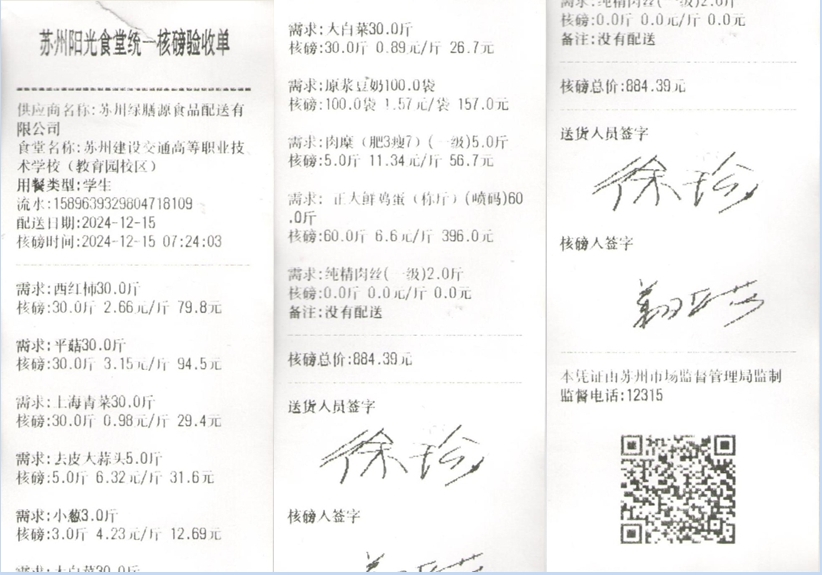 苏州阳光食堂统一核磅验收单
供应商名称:苏州绿膳源食品配送有
限公司
食堂名称:苏州建设交通高等职业技
术学校（教育园校区）
用餐类型:学生
流水:1589639329804718109
配送日期:2024-12-15
核磅时间:2024-12-15 07:24:03
需求:西红柿30.0斤
核磅:30.0斤 2.66元/斤 79.8元
需求:平菇30.0斤
核磅:30.0斤 3.15元/斤 94.5元
需求:上海青菜30.0斤
核磅:30.0斤 0.98元/斤 29.4元
需求:去皮大蒜头5.0斤
核磅:5.0斤 6.32元/斤 31.6元
需求:小葱3.0斤
核磅:3.0斤 4.23元/斤 12.69元
需求:大白菜30.0斤
需求:大白菜30.0斤
核磅:30.0斤 0.89元/斤 26.7元
需求:原浆豆奶100.0袋
核磅:100.0袋 1.57元/袋 157.0元
需求:肉糜（肥3瘦7）(一级)5.0斤
核磅:5.0斤 11.34元/斤 56.7元
需求: 正大鲜鸡蛋（称斤）(喷码)60
.0斤
核磅:60.0斤 6.6元/斤 396.0元
需求:纯精肉丝(一级)2.0斤
核磅:0.0斤 0.0元/斤 0.0元
备注:没有配送
核磅总价:884.39元
送货人员签字
徐珍
核磅人签字
需求:纯精肉丝(一级)2.0斤
核磅:0.0斤 0.0元/斤 0.0元
备注:没有配送
核磅总价:884.39元
送货人员签字
徐珍
核磅人签字
本凭证由苏州市场监督管理局监制
监督电话:12315